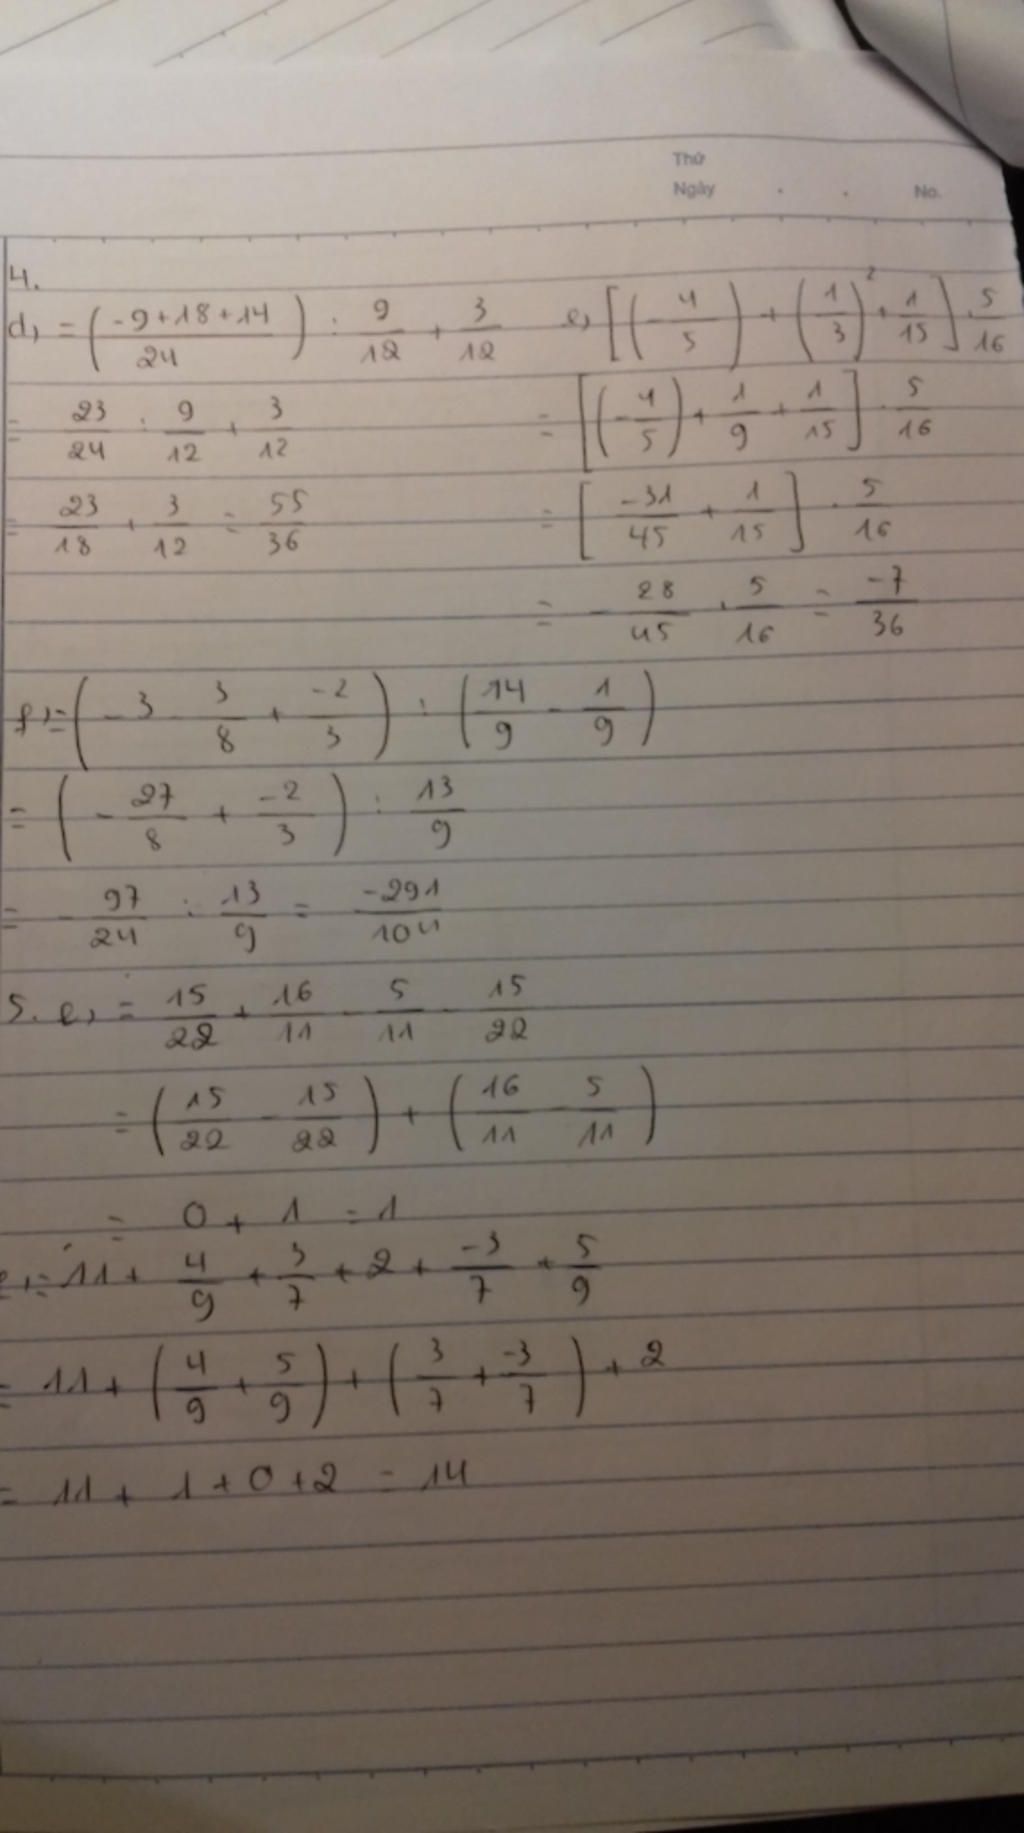 Thứ
Ngày . . No.
4.
d, = (-9+18+14/24) : 9/12 + 3/12
= 23/24 : 9/12 + 3/12
= 23/18 + 3/12 = 55/36
e, [(-4/5) + (1/3)² + 1/15] . 5/16
= [(-4/5) + 1/9 + 1/15] . 5/16
= [-31/45 + 1/15] . 5/16
= -28/45 . 5/16 = -7/36
f, = (-3 - 3/8 + -2/3) : (14/9 - 1/9)
= (-27/8 + -2/3) : 13/9
= -97/24 : 13/9 = -291/104
5. e, = 15/22 + 16/11 - 5/11 - 15/22
= (15/22 - 15/22) + (16/11 - 5/11)
= 0 + 1 = 1
= 11 + 4/9 + 3/7 + 2 + -3/7 + 5/9
= 11 + (4/9 + 5/9) + (3/7 + -3/7) + 2
= 11 + 1 + 0 + 2 = 14